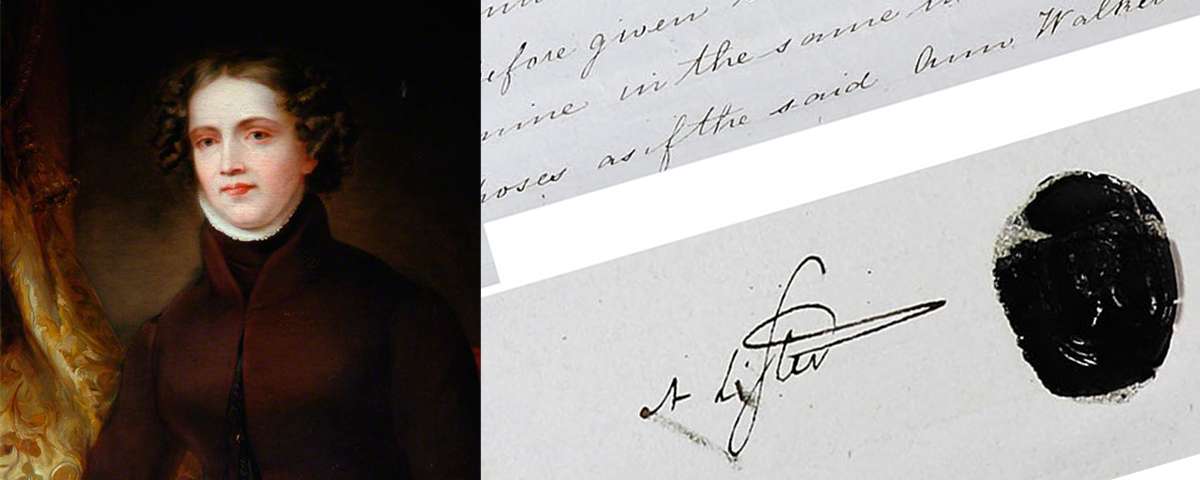 efore given
mine in the same in
poses as if the said Ann Walker
A Lister